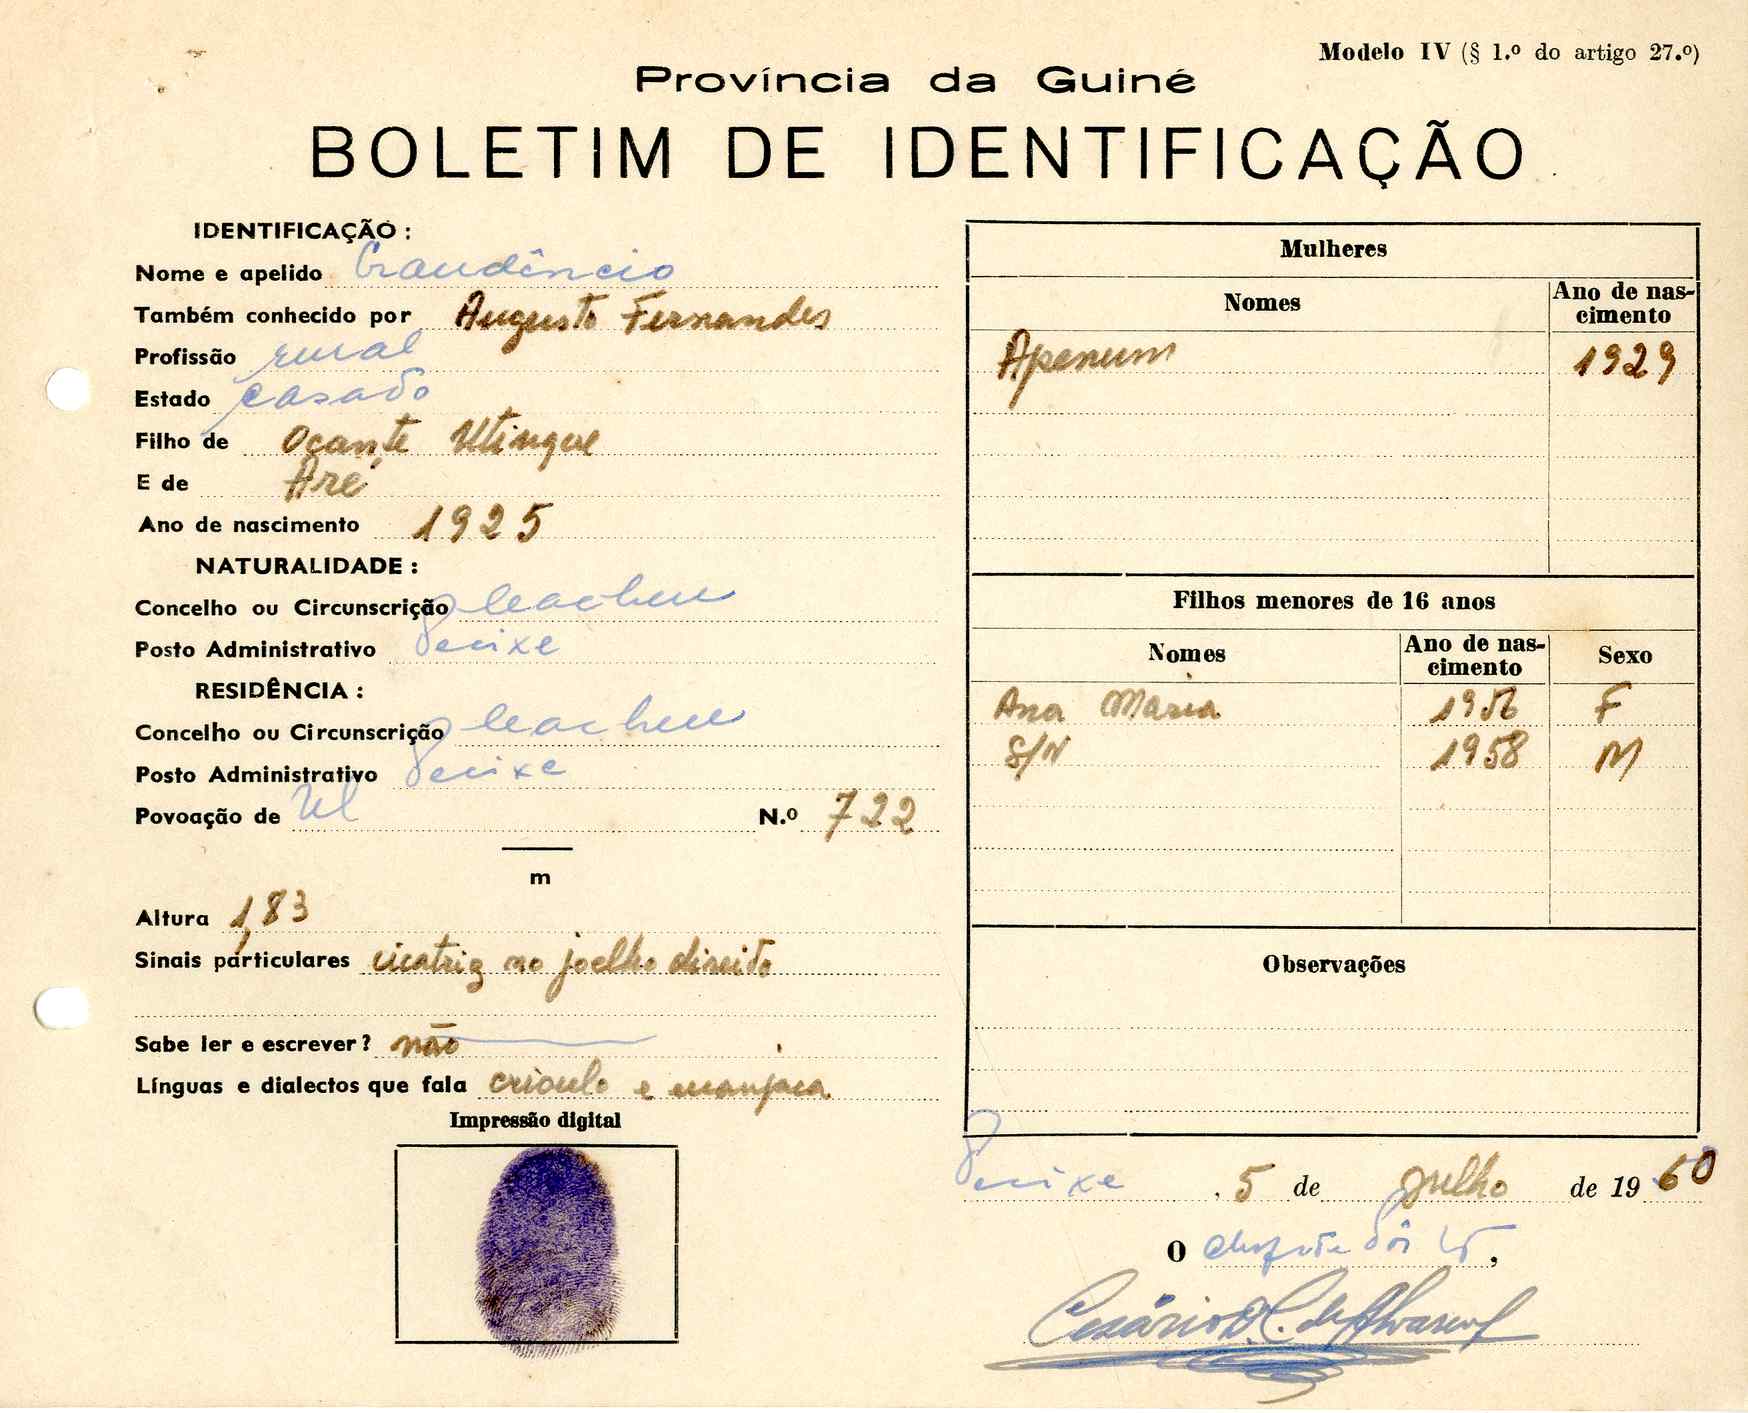 Modelo IV (§ 1.º do artigo 27.º)
Província da Guiné
BOLETIM DE IDENTIFICAÇÃO
IDENTIFICAÇÃO :
Nome e apelido Gaudêncio
Também conhecido por Augusto Fernandes
Profissão rural
Estado casado
Filho de Ocante Utingue
E de Aré
Ano de nascimento 1925
NATURALIDADE :
Concelho ou Circunscrição Cacheu
Posto Administrativo Pecixe
RESIDÊNCIA :
Concelho ou Circunscrição Cacheu
Posto Administrativo Pecixe
Povoação de N.º 722
m
Altura 1,83
Sinais particulares cicatriz no joelho direito
Sabe ler e escrever? não
Línguas e dialectos que fala crioulo e manjaca
Impressão digital
Mulheres
Nomes Ano de nascimento
Apenum 1929
Filhos menores de 16 anos
Nomes Ano de nascimento Sexo
Ana Maria 1956 F
S/N 1958 M
Observações
Pecixe, 5 de Julho de 1960
O chefe de
Cesário